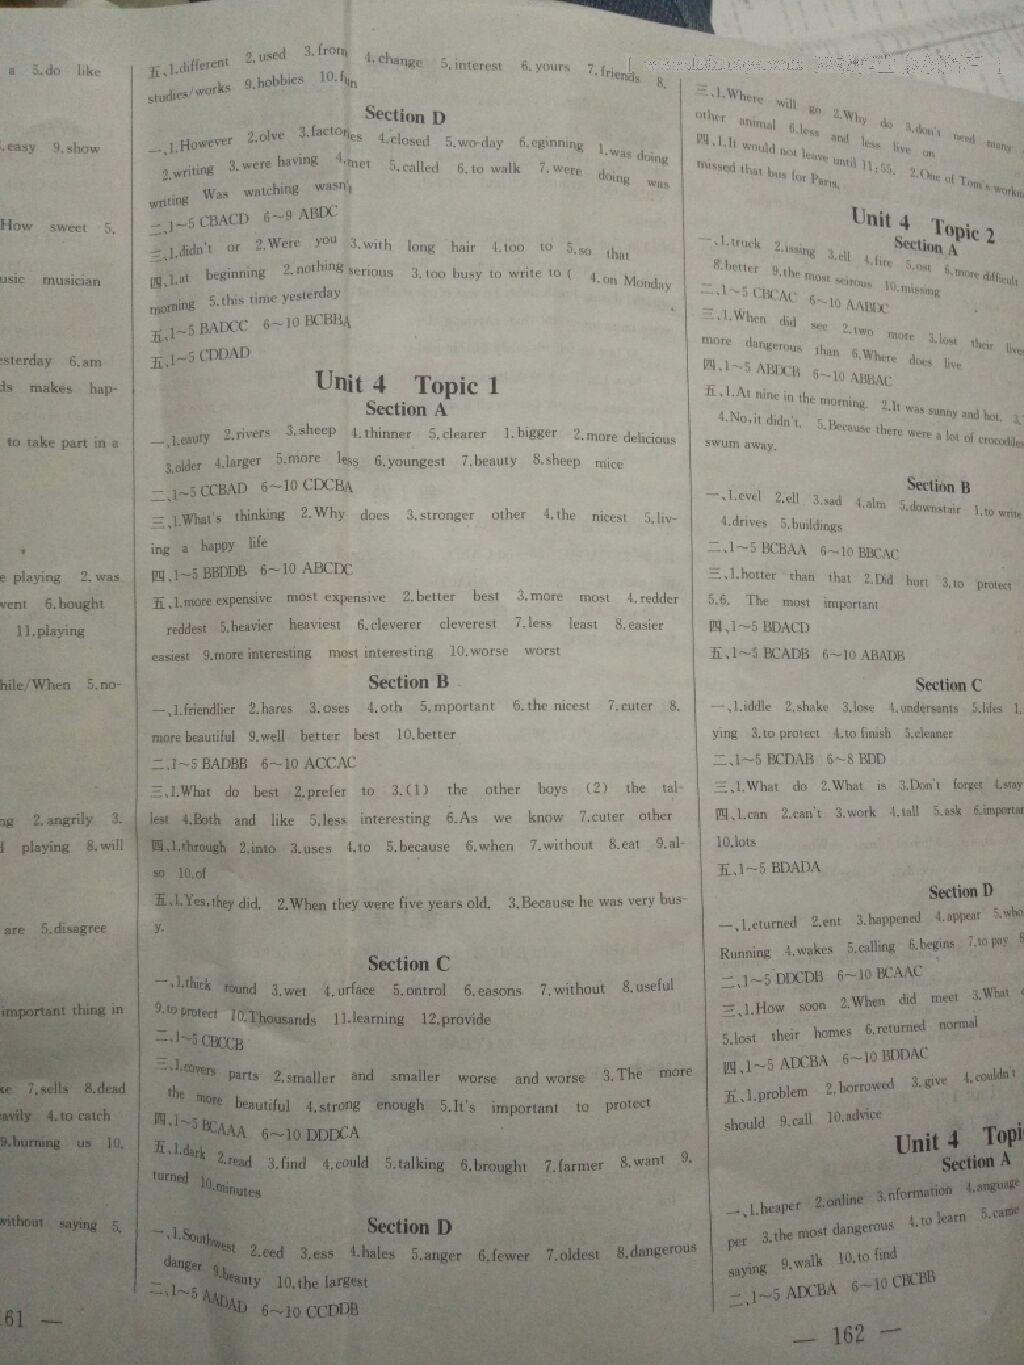 a 5.do like
.easy 9.show
How sweet 5.
usic musician
esterday 6.am
ds makes hap-
to take part in a
e playing 2.was
vent 6.bought
11.playing
hile/When 5.no-
ng 2.angrily 3.
d playing 8.will
are 5.disagree
important thing in
ke 7.sells 8.dead
eavily 4.to catch
9.burning us 10.
without saying 5.
161 —
五、1.different 2.used 3.from 4.change 5.interest 6.yours 7.friends 8.
studies/works 9.hobbies 10.fun
Section D
一、1.However 2.olve 3.factories 4.closed 5.wo-day 6.eginning 1.was doing
2.writing 3.were having 4.met 5.called 6.to walk 7.were doing was
writing Was watching wasn't
二、1~5 CBACD 6~9 ABDC
三、1.didn't or 2.Were you 3.with long hair 4.too to 5.so that
四、1.at beginning 2.nothing serious 3.too busy to write to ( 4.on Monday
morning 5.this time yesterday
五、1~5 BADCC 6~10 BCBBA
五、1~5 CDDAD
Unit 4 Topic 1
Section A
一、1.eauty 2.rivers 3.sheep 4.thinner 5.clearer 1.bigger 2.more delicious
3.older 4.larger 5.more less 6.youngest 7.beauty 8.sheep mice
二、1~5 CCBAD 6~10 CDCBA
三、1.What's thinking 2.Why does 3.stronger other 4.the nicest 5.liv-
ing a happy life
四、1~5 BBDDB 6~10 ABCDC
五、1.more expensive most expensive 2.better best 3.more most 4.redder
reddest 5.heavier heaviest 6.cleverer cleverest 7.less least 8.easier
easiest 9.more interesting most interesting 10.worse worst
Section B
一、1.friendlier 2.hares 3.oses 4.oth 5.mportant 6.the nicest 7.cuter 8.
more beautiful 9.well better best 10.better
二、1~5 BADBB 6~10 ACCAC
三、1.What do best 2.prefer to 3.(1) the other boys (2) the tal-
lest 4.Both and like 5.less interesting 6.As we know 7.cuter other
四、1.through 2.into 3.uses 4.to 5.because 6.when 7.without 8.eat 9.al-
so 10.of
五、1.Yes,they did. 2.When they were five years old. 3.Because he was very bus-
y.
Section C
一、1.thick round 3.wet 4.urface 5.ontrol 6.easons 7.without 8.useful
9.to protect 10.Thousands 11.learning 12.provide
二、1~5 CBCCB
三、1.covers parts 2.smaller and smaller worse and worse 3.The more
the more beautiful 4.strong enough 5.It's important to protect
四、1~5 BCAAA 6~10 DDDCA
五、1.dark 2.read 3.find 4.could 5.talking 6.brought 7.farmer 8.want 9.
turned 10.minutes
Section D
一、1.Southwest 2.eed 3.ess 4.hales 5.anger 6.fewer 7.oldest 8.dangerous
danger 9.beauty 10.the largest
二、1~5 AADAD 6~10 CCDDB
三、1.Where will go 2.Why do 3.don't need many
other animal 6.less and less live on
四、1.It would not leave until 11:55. 2.One of Tom's workm
missed that bus for Paris.
Unit 4 Topic 2
Section A
一、1.truck 2.issing 3.ell 4.fire 5.ost 6.more difficult
8.better 9.the most seirous 10.missing
二、1~5 CBCAC 6~10 AABDC
三、1.When did see 2.two more 3.lost their lives
more dangerous than 6.Where does live
四、1~5 ABDCB 6~10 ABBAC
五、1.At nine in the morning. 2.It was sunny and hot. 3.
4.No,it didn't. 5.Because there were a lot of crocodiles
swum away.
Section B
一、1.evel 2.ell 3.sad 4.alm 5.downstair 1.to write
4.drives 5.buildings
二、1~5 BCBAA 6~10 BBCAC
三、1.hotter than that 2.Did hurt 3.to protect
5.6. The most important
四、1~5 BDACD
五、1~5 BCADB 6~10 ABADB
Section C
一、1.iddle 2.shake 3.lose 4.undersants 5.lifes 1.
ying 3.to protect 4.to finish 5.cleaner
二、1~5 BCDAB 6~8 BDD
三、1.What do 2.What is 3.Don't forget 4.stay
四、1.can 2.can't 3.work 4.tall 5.ask 6.importan
10.lots
五、1~5 BDADA
Section D
一、1.eturned 2.ent 3.happened 4.appear 5.who
Running 4.wakes 5.calling 6.begins 7.to pay 8
二、1~5 DDCDB 6~10 BCAAC
三、1.How soon 2.When did meet 3.What
5.lost their homes 6.returned normal
四、1~5 ADCBA 6~10 BDDAC
五、1.problem 2.borrowed 3.give 4.couldn't
should 9.call 10.advice
Unit 4 Topi
Section A
一、1.heaper 2.online 3.nformation 4.anguage
per 3.the most dangerous 4.to learn 5.came
saying 9.walk 10.to find
二、1~5 ADCBA 6~10 CBCBB
— 162 —